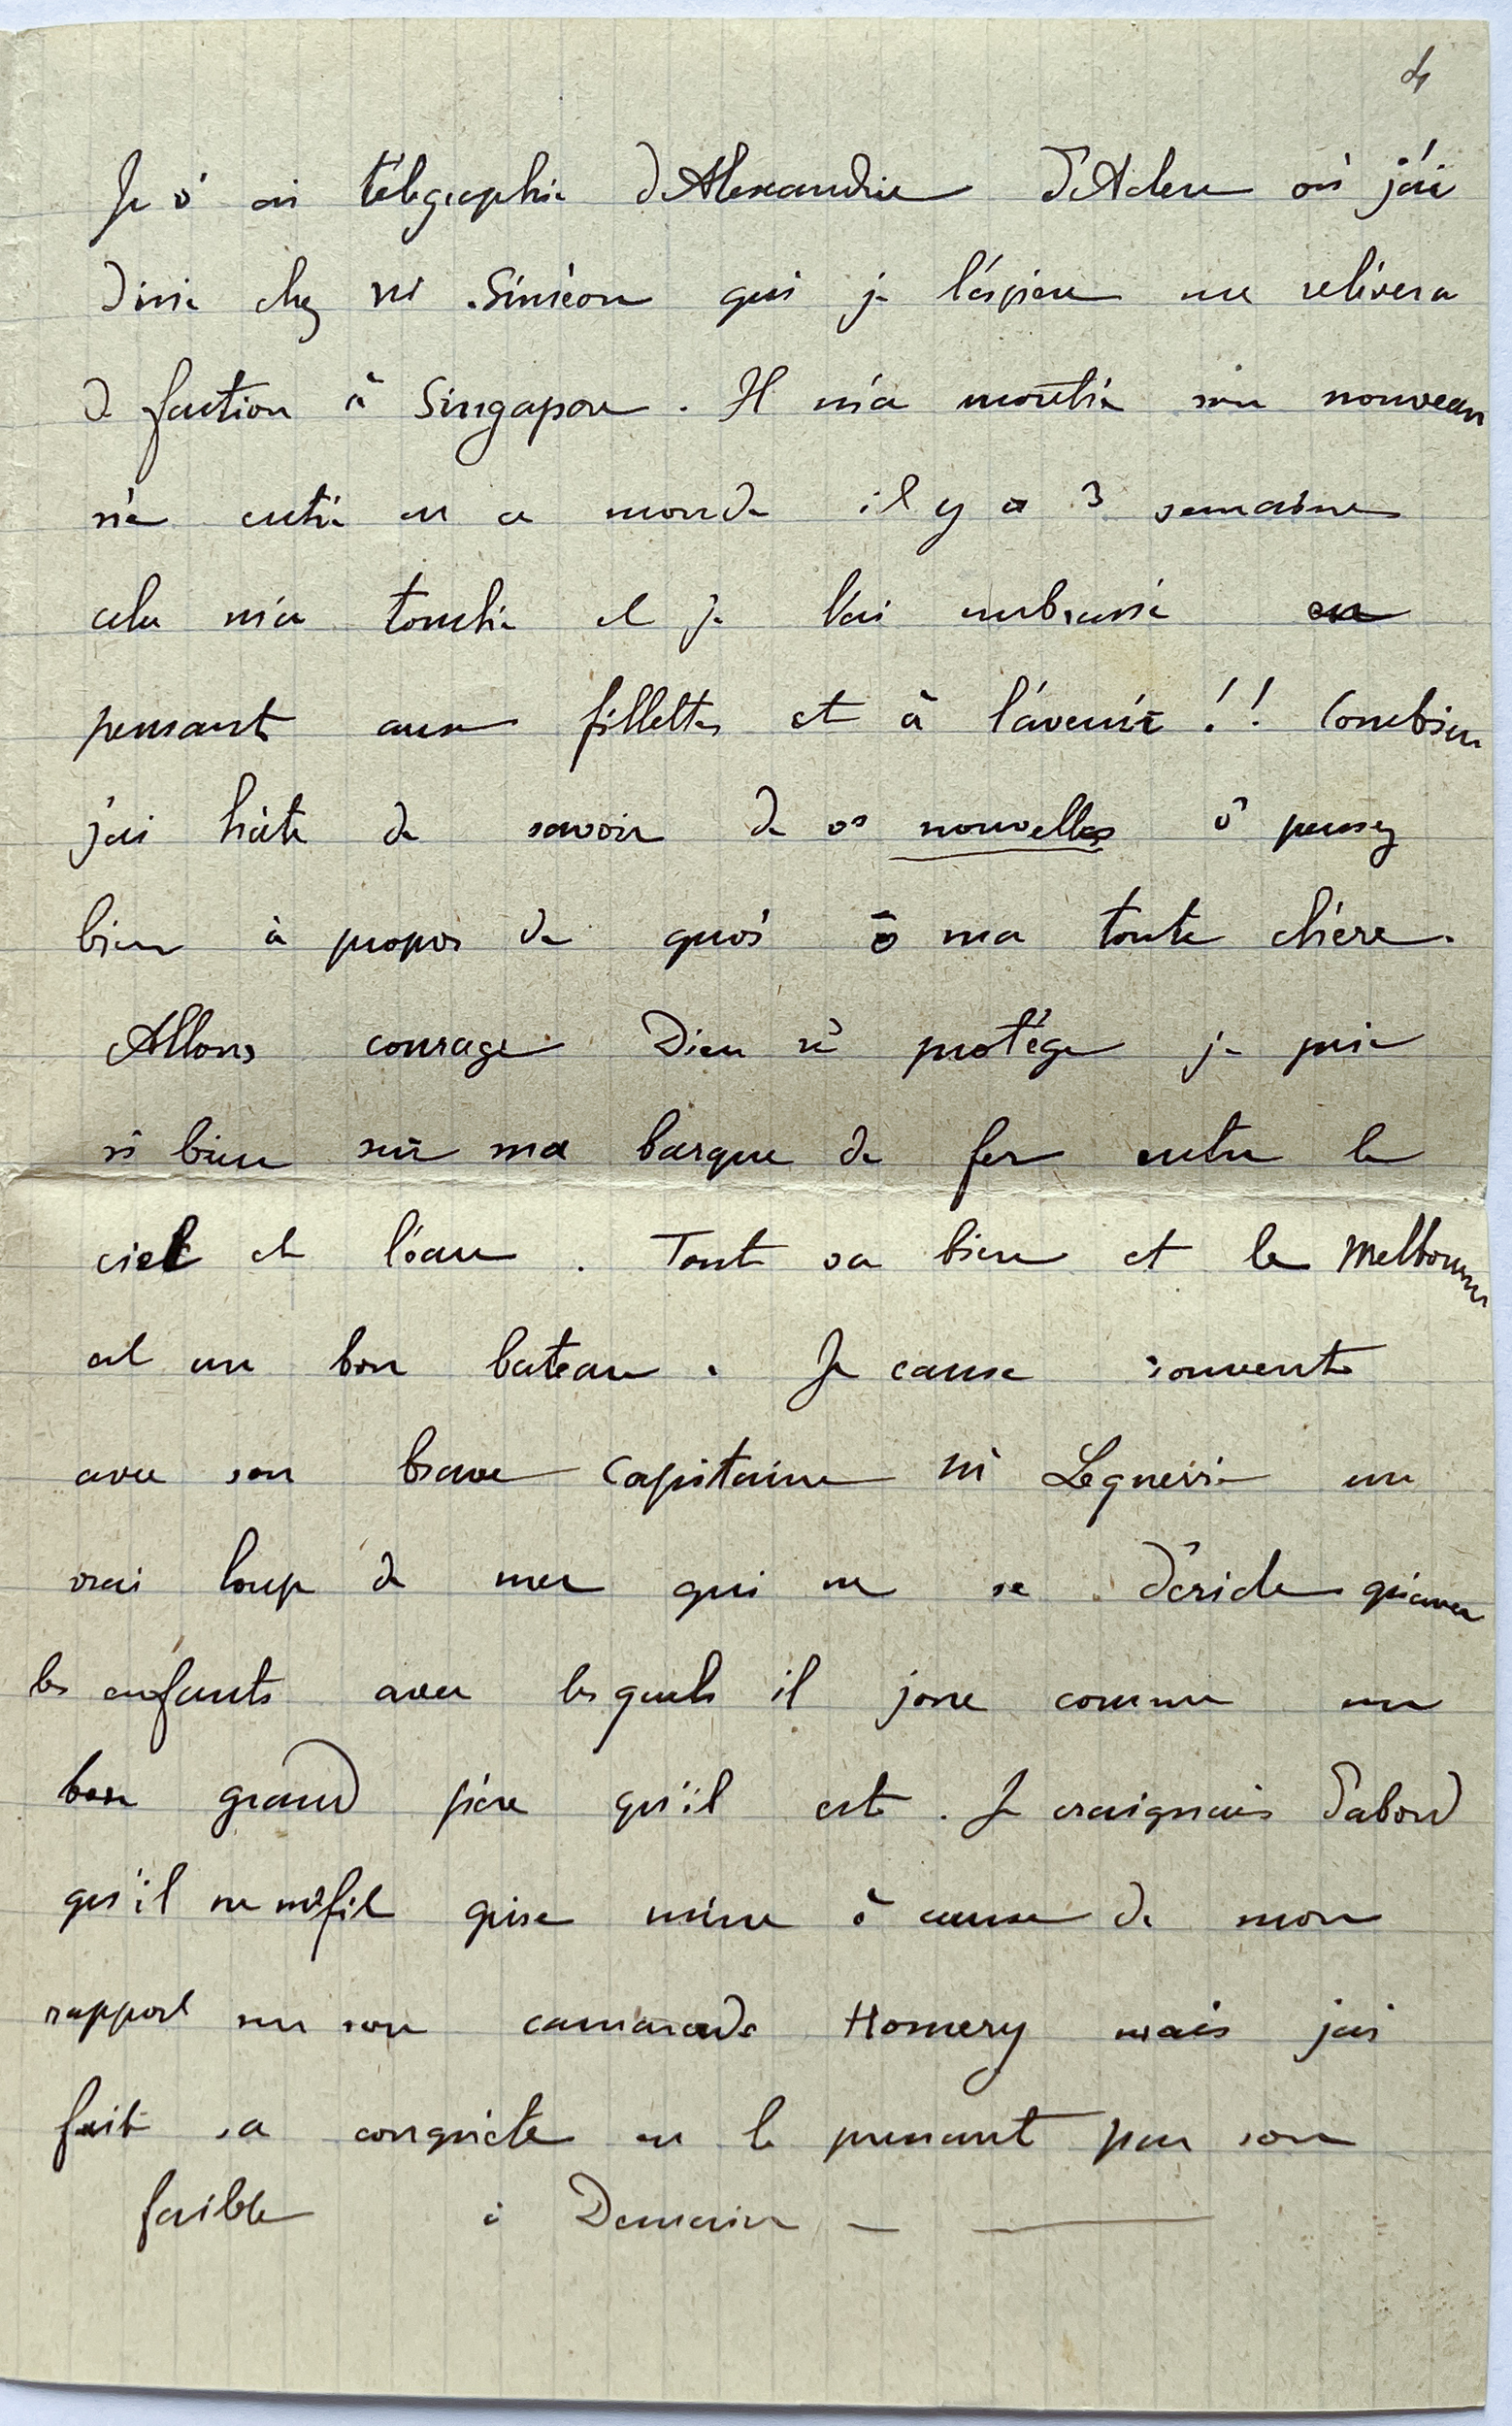 4
Je v° ai télégraphié d'Alexandrie d'Aden où j'ai
diné chez Mr Siméon qui je l'éspère me relèvera
de faction à Singapore. Il m'a montré son nouveau
né entré en ce monde il y a 3 semaines
cela m'a touché et je l'ai embrassé en
pensant aux fillettes et à l'avenir !! Combien
j'ai hâte de savoir de vos nouvelles v° pensez
bien à propos de quoi ô ma toute chère.
Allons courage Dieu n° protége je prie
si bien sur ma barque de fer entre le
ciel et l'eau. Tout va bien et le Melbourne
est un bon bateau. Je cause souvent
avec son brave Capitaine Mr un
vrai loup de mer qui ne se déride qu'avec
les enfants avec lesquels il joue comme un
bon grand père qu'il est. Je craignais d'abord
qu'il ne me fit grise mine à cause de mon
rapport sur son camarade Homery mais j'ai
fait sa conquète en le prenant par son
faible à Demain —